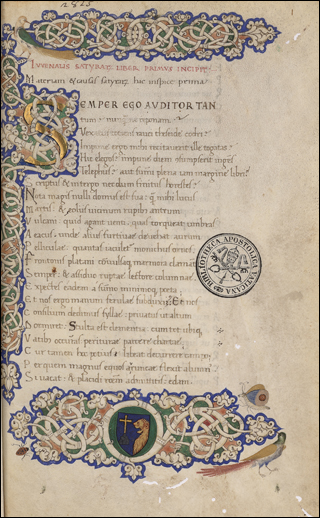 2825
IVVENALIS SATYRARVM LIBER PRIMVS INCIPIT
Materiam & causas satyrar hac inspice prima
SEMPER EGO AVDITOR TAN
tum: nunquam reponam
Vexatus totiens rauci theseide codri?
Impune ergo mihi recitauerit ille togatas
Hic elegos? impune diem consumpserit ingens
Telephus? aut summi plena iam margine libri
Scriptus & in tergo necdum finitus horestes?
Nota magis nulli domus est sua: quam mihi lucus
Martis: & aeoliis uicinum rupibus antrum
Vulcani: quid agant uenti: quas torqueat umbras
Eacus: unde alius furtiuae deuehat aurum
Pelliculae: quantas iaculet monichus ornos:
Frontonis platani marmora clamant
Semper: & assiduo ruptae lectore columnae.
Expectes eadem a summo minimoq poeta.
Et nos ergo manum ferulae subduximus: Et nos
Consilium dedimus syllae: priuatus ut altum
Dormiret. Stulta est clementia cum tot ubiq
Vatibus occurras periturae parcere chartae.
Cur tamen hoc potius libeat decurrere campo
Per quem magnus equos aruncae flexit alumn
Si uacat: & placidi admittitis: edam.
BIBLIOTHECA APOSTOLICA VATICANA